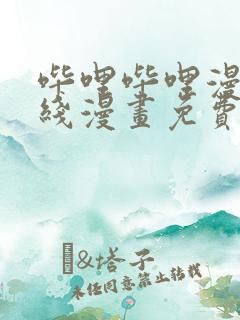 哔哩哔哩漫
线漫畫免費
&塔子
未任同意禁止转载